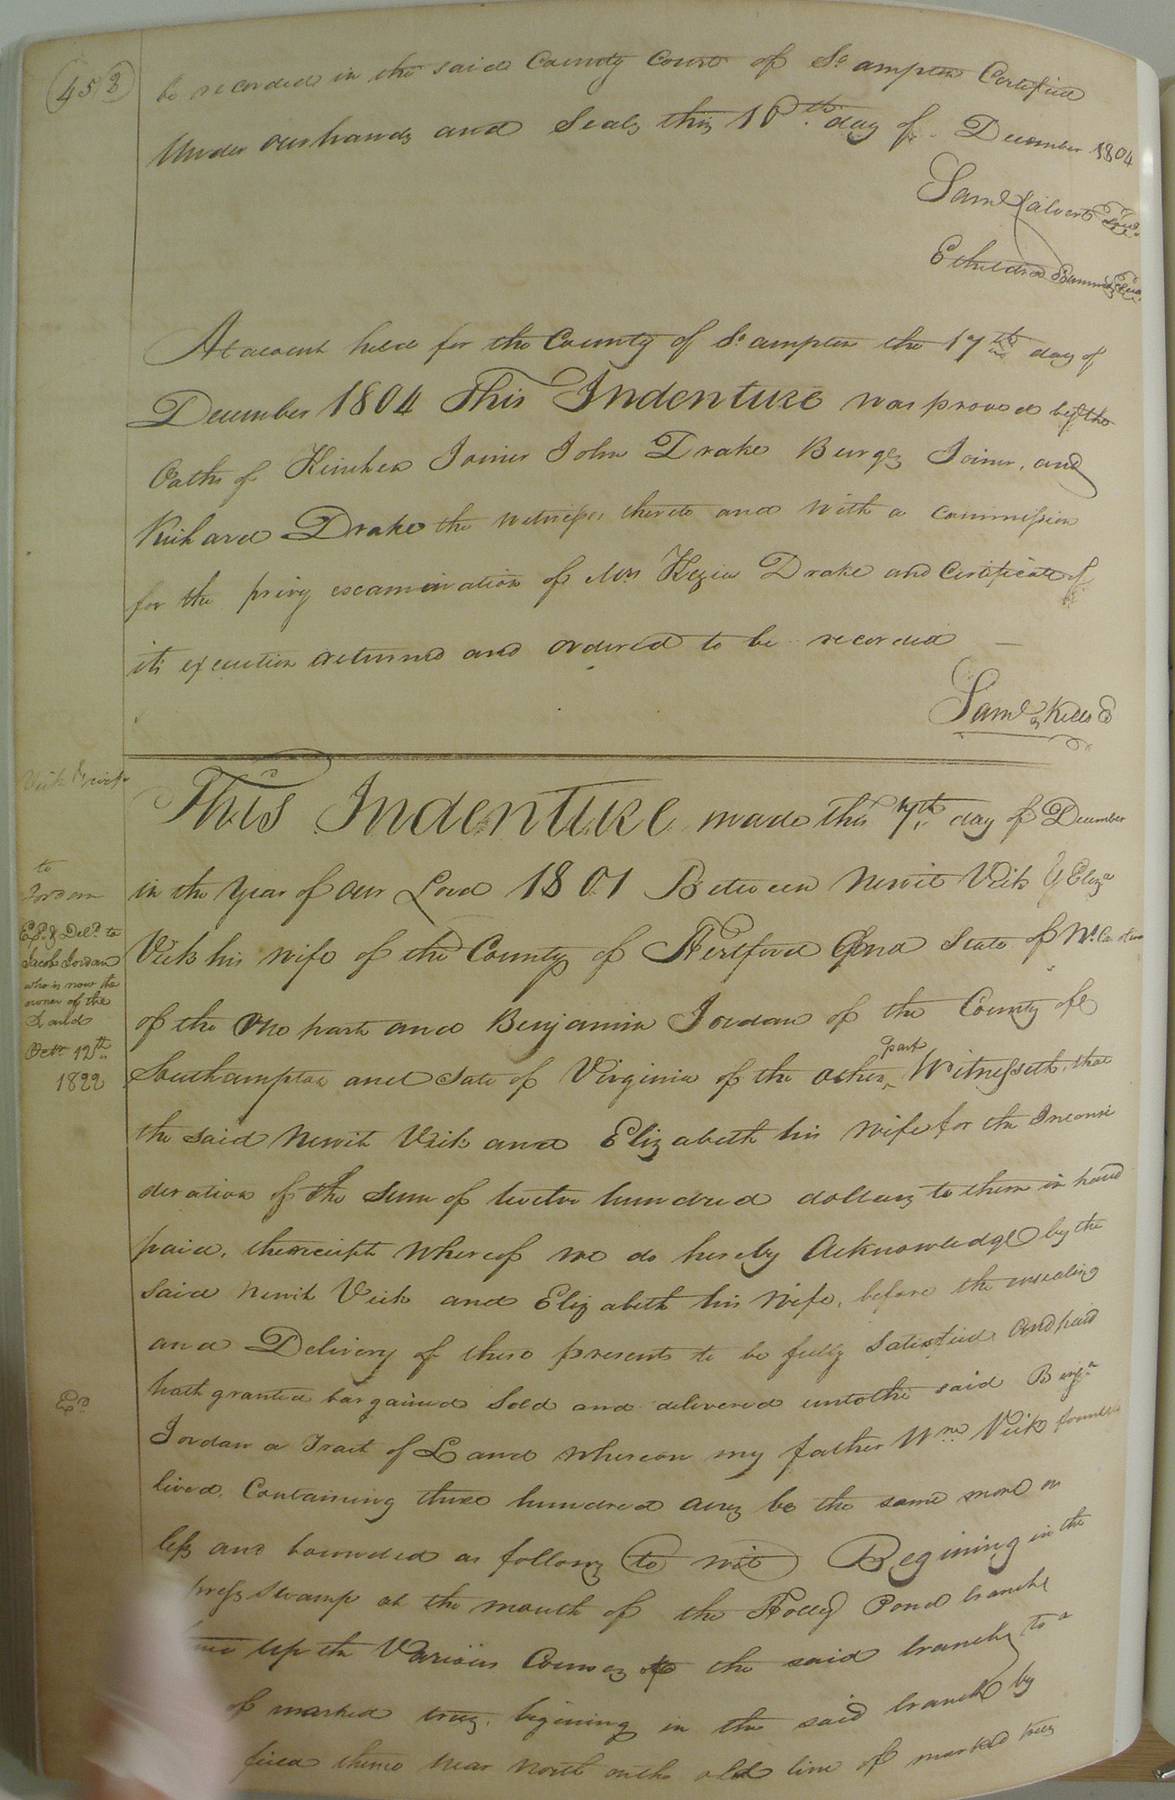 452
be recorded in the said County Court of So ampton Certified
Under our hands and Seals this 10th day of December 1804
Saml Calvert
Etheldred
At a court held for the County of So ampton the 17th day of
December 1804 This Indenture was proved by the
Oaths of Kinchen Joiner John Drake Burges Joiner, and
Richard Drake the witnesses thereto and with a commission
for the privy examination of Mrs Kezia Drake and Certificate of
its execution returned and ordered to be recorded
Saml Kello
This Indenture made this 7th day of December
in the Year of our Lord 1801 Between Newit Vick & Eliza
Vick his wife of the County of Hertford And State of No. Carolina
of the One part and Benjamin Jordan of the County of
Southampton and State of Virginia of the other part Witnesseth, that
the said Newit Vick and Elizabeth his wife for the Inconsi
deration of the Sum of twelve hundred dollars to them in hand
paid, the receipt whereof we do hereby Acknowledge by the
said Newit Vick and Elizabeth his Wife, before the ensealing
and Delivery of these presents to be fully Satisfied And paid
hath granted bargained Sold and delivered unto the said Benja
Jordan a Tract of Land whereon my father Wm. Vick formerly
lived, Containing three hundred acres be the same more or
less and bounded as follows to wit Begining in the
press Swamp at the mouth of the Holley Pond branch
up the Various Courses of the said branch to a
of marked trees, begining in the said branch by
fied thence near North on the old line of marked trees
Vick
to
Jordan
Ex. & Deld. to
Jacob Jordan
who is now the
owner of the
Land
Octr 12th
1822
Exd